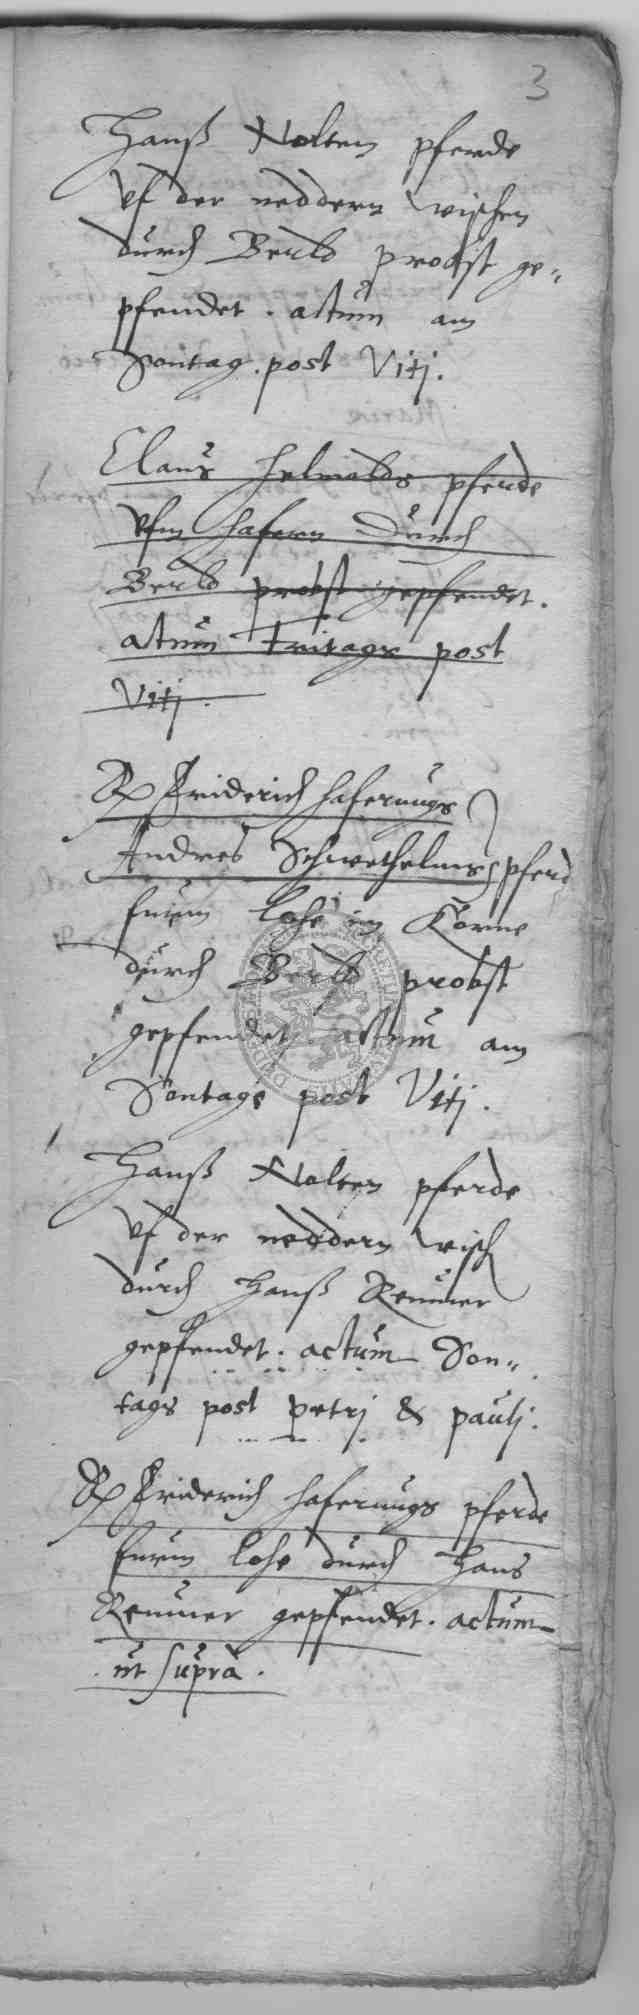 3
Hanß Nolten pferde
vf der neddern wischen
durch Berld probst ge-
pfendet. actum am
Sontag. post Viti.
Claus Helmolds pferde
vfm Hafern durch
Berld probst gepfendet.
atum fritags post
Viti.
Friderich Hafernugs
Andres Schwethelms pferd
furm Lohe im Korne
durch Berld probst
gepfendet. actum am
Sontags post Viti.
Hanß Nolten pferde
vf der neddern wisch
durch Hanß Remmer
gepfendet. actum Son-
tags post petri & pauli.
Friderich Hafernugs pferde
furm Lohe durch Hans
Remmer gepfendet. actum
ut supra.